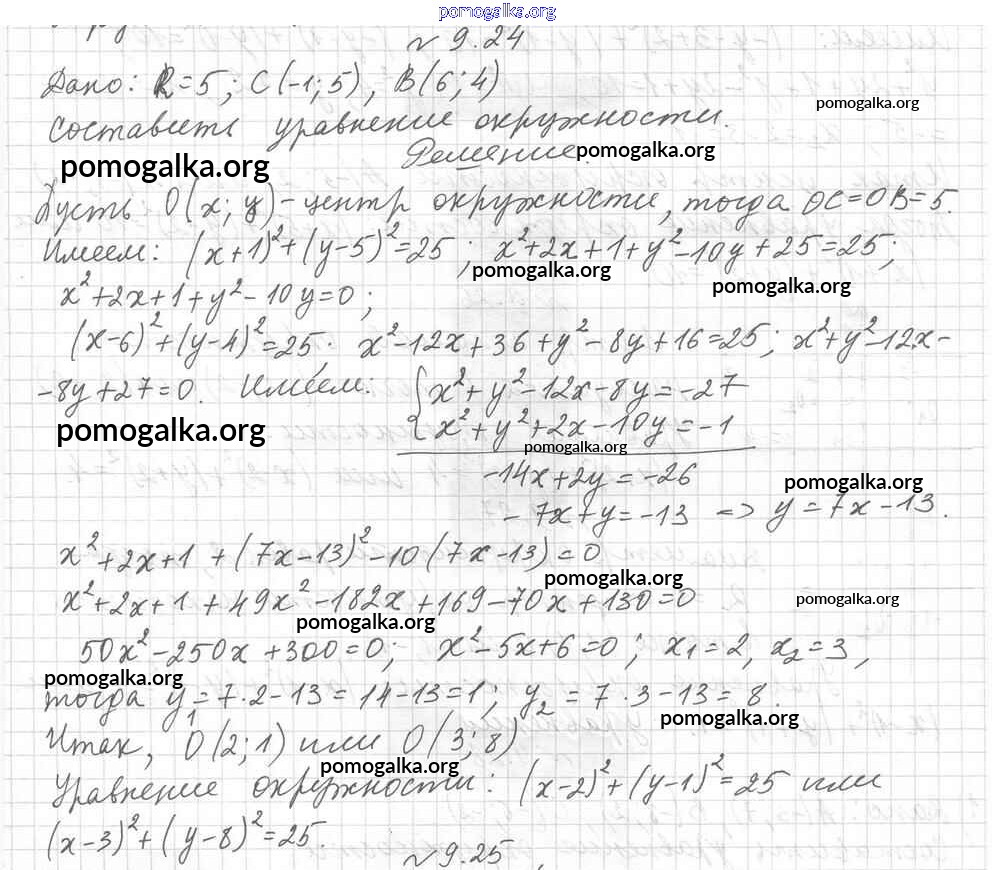 pomogalka.org
№ 9.24
Дано: R=5; C(-1;5), B(6;4)
pomogalka.org
составить уравнение окружности.
Решение.
pomogalka.org
pomogalka.org
Пусть O(x; y) - центр окружности, тогда OC=OB=5.
Имеем: (x+1)²+(y-5)²=25; x²+2x+1+y²-10y+25=25;
pomogalka.org
pomogalka.org
x²+2x+1+y²-10y=0;
(x-6)²+(y-4)²=25; x²-12x+36+y²-8y+16=25; x²+y²-12x-
-8y+27=0. Имеем: { x²+y²-12x-8y=-27
pomogalka.org
x²+y²+2x-10y=-1
pomogalka.org
-14x+2y=-26
pomogalka.org
-7x+y=-13 => y=7x-13.
x²+2x+1+(7x-13)²-10(7x-13)=0
pomogalka.org
x²+2x+1+49x²-182x+169-70x+130=0
pomogalka.org
pomogalka.org
50x²-250x+300=0; x²-5x+6=0; x₁=2, x₂=3,
pomogalka.org
тогда y₁=7·2-13=14-13=1; y₂=7·3-13=8.
pomogalka.org
Итак, O(2;1) или O(3;8)
pomogalka.org
Уравнение окружности: (x-2)²+(y-1)²=25 или
(x-3)²+(y-8)²=25.
№ 9.25